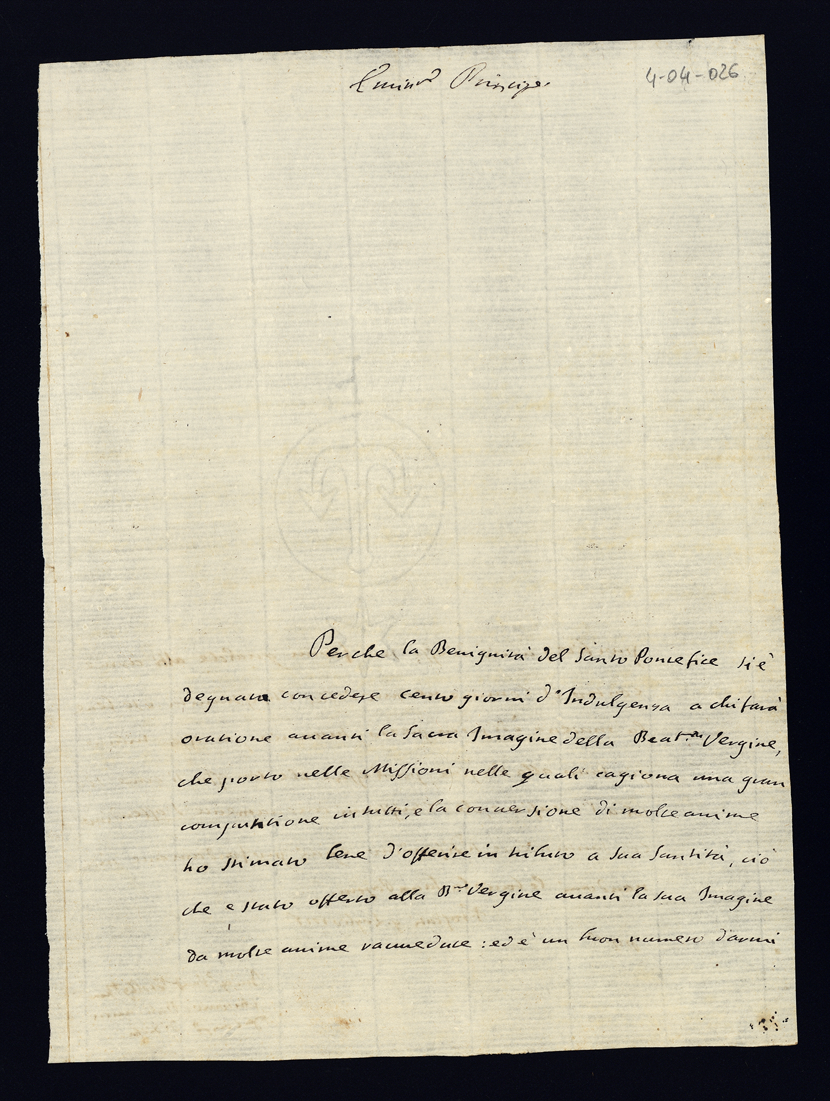 Emin.mo Principe.
4-04-026
Perche la Benignità del Santo Pontefice si è
degnata concedere cento giorni d'Indulgenza a chi farà
oratione avanti la Sacra Imagine della Beat.ma Vergine,
che porto nelle Missioni nelle quali cagiona una gran
compuntione in tutti, e la conversione di molte anime
ho stimato bene d'offerire in tributo a Sua Santità, ciò
che è stato offerto alla B.ma Vergine avanti la sua Imagine
da molte anime ravvedute: ed è un buon numero d'armi